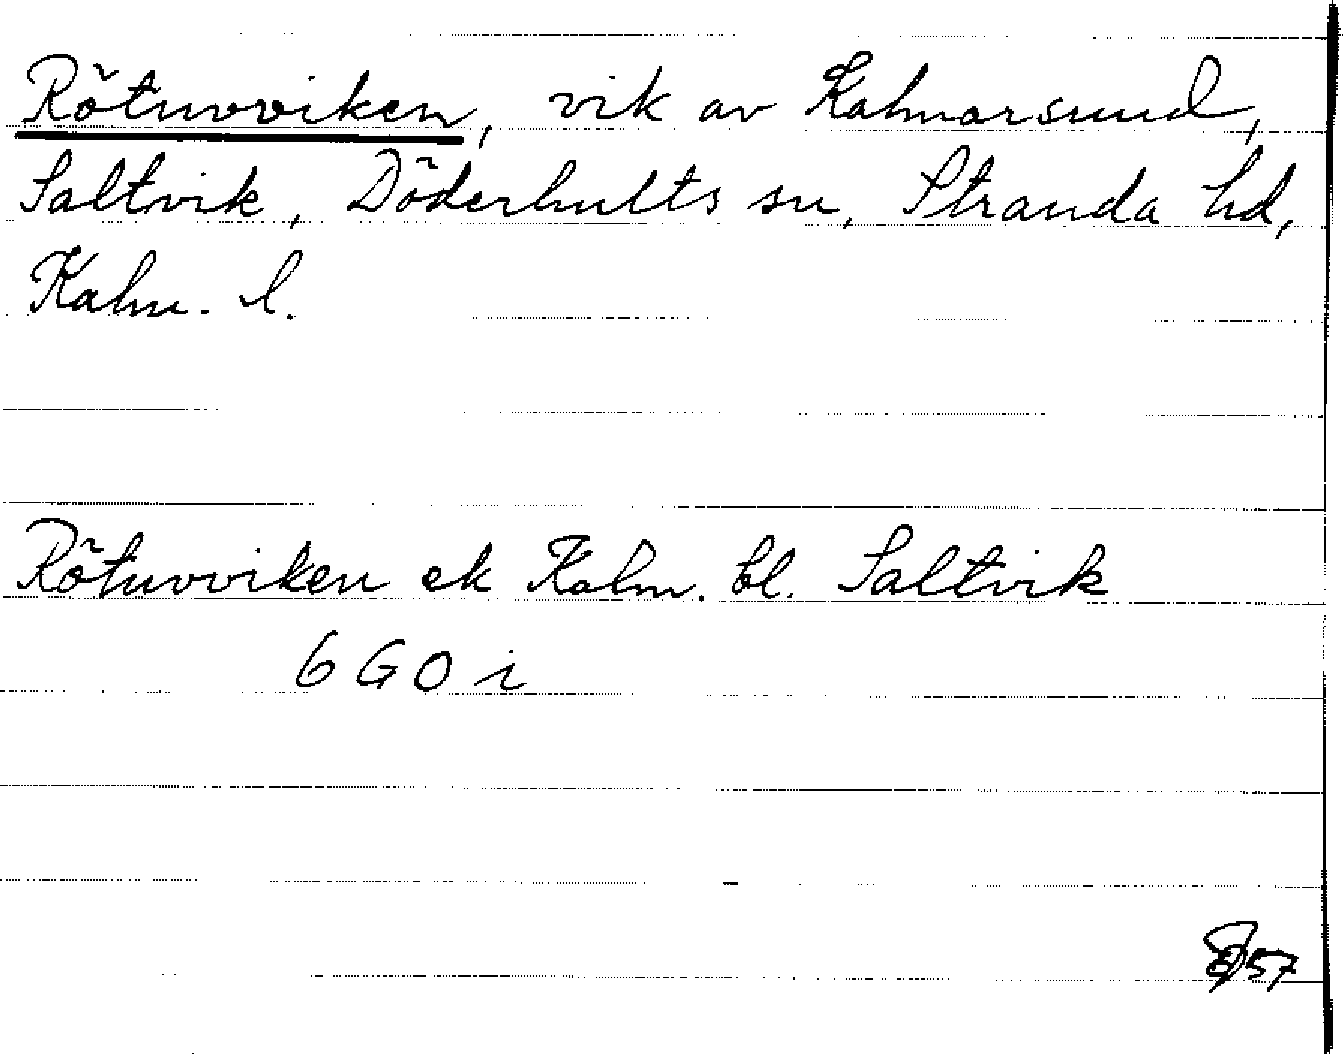 Rötuvviken, vik av Kalmarsund,
Saltvik, Döderhults sn, Stranda hd,
Kalm. l.
Rötuvviken ek Kalm. bl. Saltvik
6 G O i
57